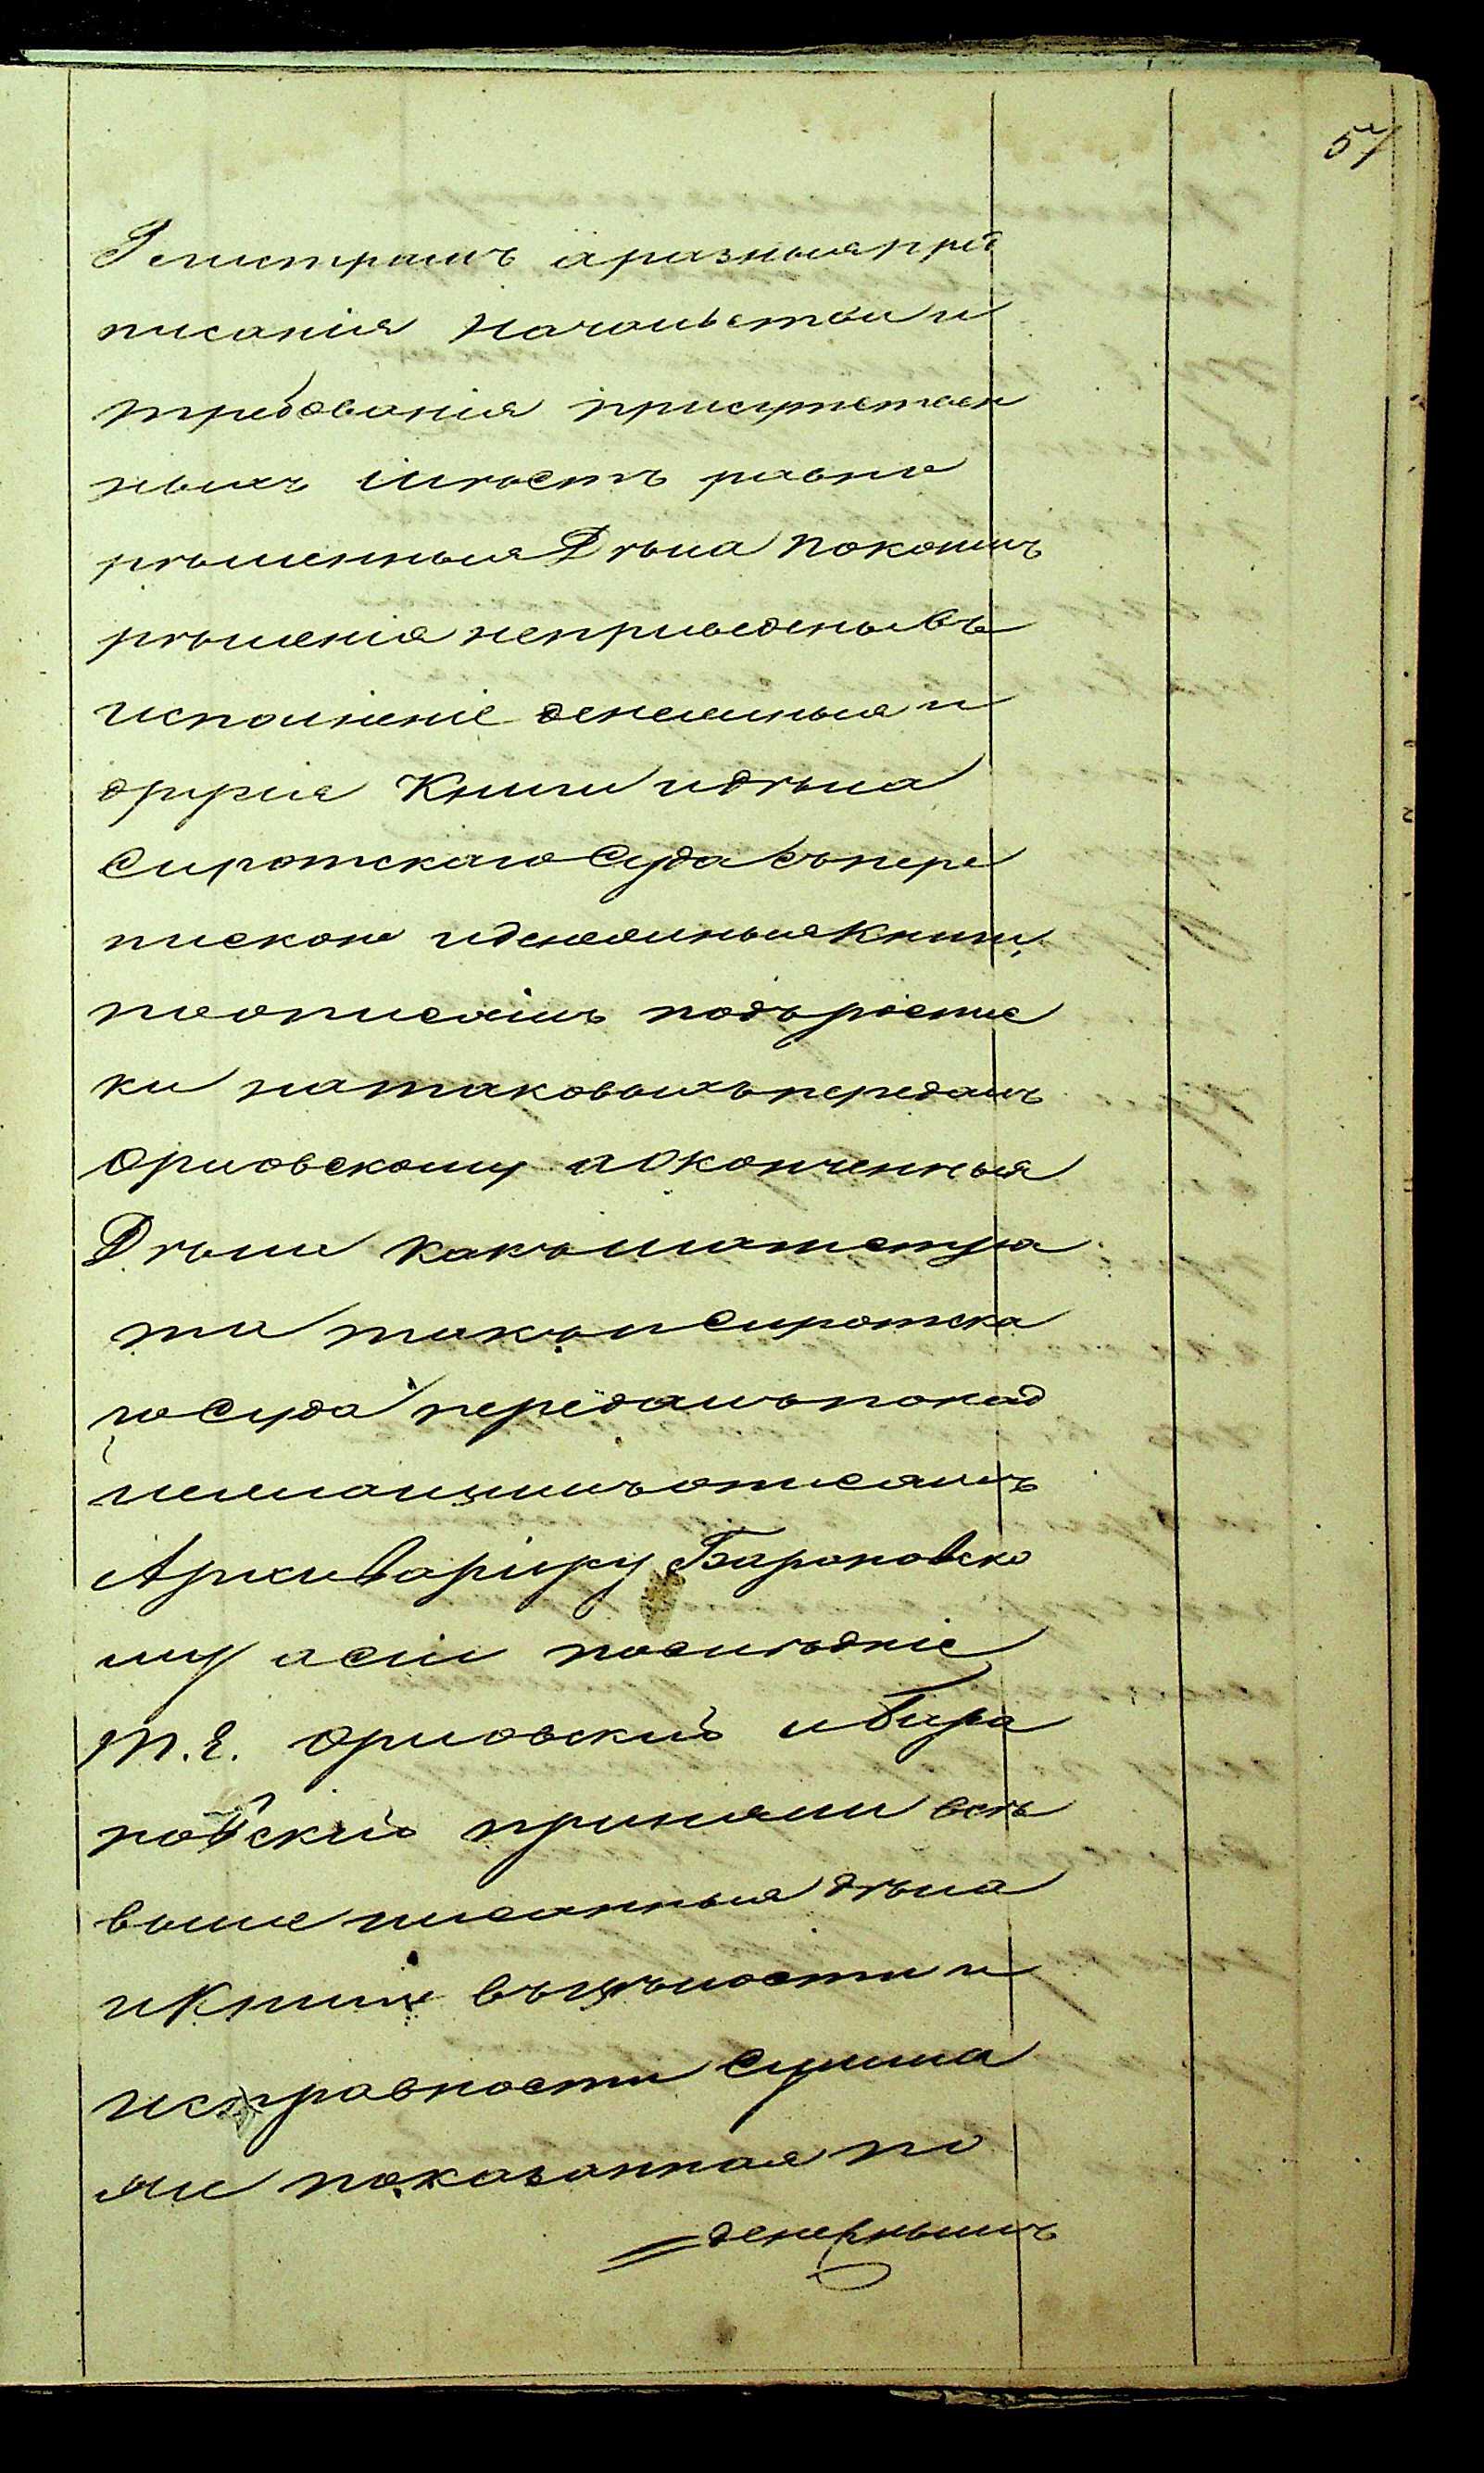 57
Регистрамъ а разныя пред
писанія Начальства и
требованія присутствен
ныхъ мѣстъ равно
рѣшенныя Дѣла по коимъ
рѣшенія неприведены въ
исполненіе денежныя и
другія Книги и дѣла
Сиротскаго Суда съ пере
пискою и денежныя Книги
по описямъ подъ роспис
ки на таковыхъ передалъ
Орловскому а оконченныя
Дѣла какъ Магистра
та такъ и Сиротска
го Суда передалъ по над
лежащимъ описямъ
Архиваріусу Бароновско
му а сіи послѣдніе
т.е. Орловскій и Баро
новскій приняли всѣ
выше писанныя дѣла
и Книги въ цѣлости и
исправности Сумма
же показанная по
денежнымъ